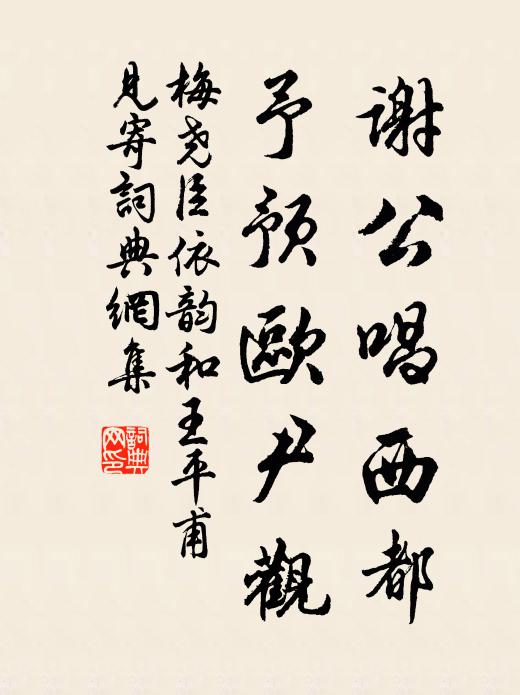 謝公唱西都
予預歐尹觀
梅尧臣依韵和王平甫
見寄詞典網集
詞典
网印